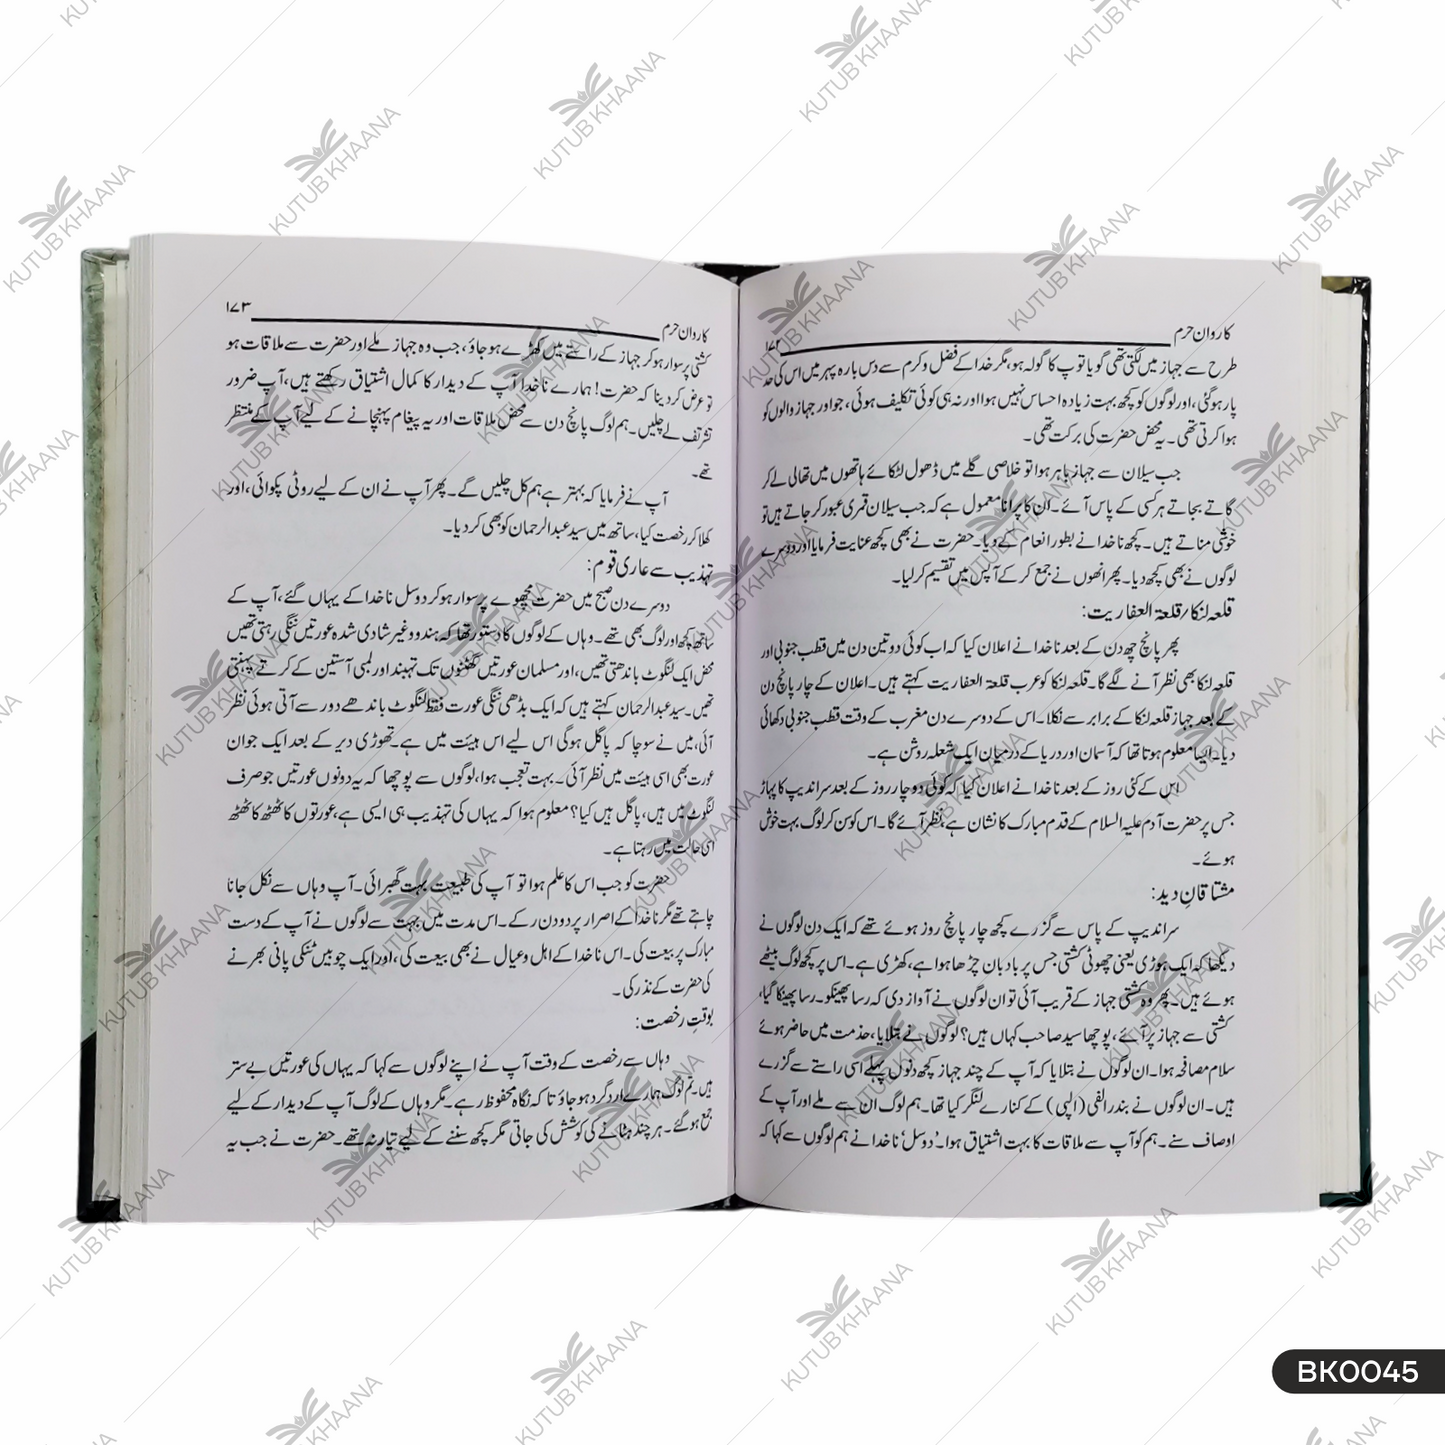 کاروان حرم
۱۷۲
طرح سے جہاز میں لگتی تھی گویا توپ کا گولہ ہو، مگر خدا کے فضل و کرم سے دس بارہ پہر میں اس کی حد
پار ہوگئی، اور لوگوں کو کچھ بہت زیادہ احساس نہیں ہوا اور نہ ہی کوئی تکلیف ہوئی، جو اور جہاز والوں کو
ہوا کرتی تھی۔ یہ محض حضرت کی برکت تھی۔
جب سیلان سے جہاز باہر ہوا تو خلاصی گلے میں ڈھول لٹکائے ہاتھوں میں تھالی لے کر
گاتے بجاتے ہر کسی کے پاس آئے۔ ان کا پرانا معمول ہے کہ جب سیلان قمری عبور کر جاتے ہیں تو
خوشی مناتے ہیں۔ کچھ ناخدا نے بطور انعام کے دیا۔ حضرت نے بھی کچھ عنایت فرمایا اور دوسرے
لوگوں نے بھی کچھ دیا۔ پھر انھوں نے جمع کر کے آپس میں تقسیم کر لیا۔
قلعہ لنکا/ قلعۃ العفاریت:
پھر پانچ چھ دن کے بعد ناخدا نے اعلان کیا کہ اب کوئی دو تین دن میں قطب جنوبی اور
قلعہ لنکا بھی نظر آنے لگے گا۔ قلعہ لنکا کو عرب قلعۃ العفاریت کہتے ہیں۔ اعلان کے چار پانچ دن
کے بعد جہاز قلعہ لنکا کے برابر سے نکلا۔ اس کے دوسرے دن مغرب کے وقت قطب جنوبی دکھائی
دیا۔ ایسا معلوم ہوتا تھا کہ آسمان اور دریا کے درمیان ایک شعلہ روشن ہے۔
اس کے کئی روز کے بعد ناخدا نے اعلان کیا کہ کوئی دو چار روز کے بعد سراندیپ کا پہاڑ
جس پر حضرت آدم علیہ السلام کے قدم مبارک کا نشان ہے، نظر آئے گا۔ اس کو سن کر لوگ بہت خوش
ہوئے۔
مشتاقانِ دید:
سراندیپ کے پاس سے گزرے کچھ چار پانچ روز ہوئے تھے کہ ایک دن لوگوں نے
دیکھا کہ ایک ہوڑی یعنی چھوٹی کشتی جس پر بادبان چڑھا ہوا ہے، کھڑی ہے۔ اس پر کچھ لوگ بیٹھے
ہوئے ہیں۔ پھر وہ کشتی جہاز کے قریب آئی تو ان لوگوں نے آواز دی کہ رسا پھینکو۔ رسا پھینکا گیا،
کشتی سے جہاز پر آئے، پوچھا سید صاحب کہاں ہیں؟ لوگوں نے بتلایا، خدمت میں حاضر ہوئے
سلام مصافحہ ہوا۔ ان لوگوں نے بتلایا کہ آپ کے چند جہاز کچھ دنوں پہلے اسی راستے سے گزرے
ہیں۔ ان لوگوں نے بندر الفی (الپی) کے کنارے لنگر کیا تھا۔ ہم لوگ ان سے ملے اور آپ کے
اوصاف سنے۔ ہم کو آپ سے ملاقات کا بہت اشتیاق ہوا۔ 'دوسل' ناخدا نے ہم لوگوں سے کہا کہ
کاروان حرم
۱۷۳
کشتی پر سوار ہو کر جہاز کے راستے میں کھڑے ہو جاؤ، جب وہ جہاز ملے اور حضرت سے ملاقات ہو
تو عرض کر دینا کہ حضرت! ہمارے ناخدا آپ کے دیدار کا کمال اشتیاق رکھتے ہیں، آپ ضرور
تشریف لے چلیں۔ ہم لوگ پانچ دن سے محض ملاقات اور یہ پیغام پہنچانے کے لیے آپ کے منتظر
تھے۔
آپ نے فرمایا کہ بہتر ہے ہم کل چلیں گے۔ پھر آپ نے ان کے لیے روٹی پکوائی، اور
کھلا کر رخصت کیا، ساتھ میں سید عبدالرحمان کو بھی کر دیا۔
تہذیب سے عاری قوم:
دوسرے دن صبح میں حضرت مچھوے پر سوار ہو کر دوسل ناخدا کے یہاں گئے، آپ کے
ساتھ کچھ اور لوگ بھی تھے۔ وہاں کے لوگوں کا دستور تھا کہ ہندو و غیر شادی شدہ عورتیں ننگی رہتی تھیں
محض ایک لنگوٹ باندھتی تھیں، اور مسلمان عورتیں گھٹنوں تک تہبند اور لمبی آستین کے کرتے پہنتی
تھیں۔ سید عبدالرحمان کہتے ہیں کہ ایک بڈھی ننگی عورت فقط لنگوٹ باندھے دور سے آتی ہوئی نظر
آئی، میں نے سوچا کہ پاگل ہوگی اس لیے اس ہیئت میں ہے۔ تھوڑی دیر کے بعد ایک جوان
عورت بھی اسی ہیئت میں نظر آئی۔ بہت تعجب ہوا، لوگوں سے پوچھا کہ یہ دونوں عورتیں جو صرف
لنگوٹ میں ہیں، پاگل ہیں کیا؟ معلوم ہوا کہ یہاں کی تہذیب ہی ایسی ہے، عورتوں کا ٹھٹھ کا ٹھٹھ
اسی حالت میں رہتا ہے۔
حضرت کو جب اس کا علم ہوا تو آپ کی طبیعت بہت گھبرائی۔ آپ وہاں سے نکل جانا
چاہتے تھے مگر ناخدا کے اصرار پر دو دن رکے۔ اس مدت میں بہت سے لوگوں نے آپ کے دست
مبارک پر بیعت کی۔ اس ناخدا کے اہل و عیال نے بھی بیعت کی، اور ایک چوبیں ٹنکی پانی بھرنے
کی حضرت کے نذر کی۔
بوقتِ رخصت:
وہاں سے رخصت کے وقت آپ نے اپنے لوگوں سے کہا کہ یہاں کی عورتیں بے ستر
ہیں۔ تم لوگ ہمارے ارد گرد ہو جاؤ تا کہ نگاہ محفوظ رہے۔ مگر وہاں کے لوگ آپ کے دیدار کے لیے
جمع ہوگئے۔ ہر چند ہٹانے کی کوشش کی جاتی مگر کچھ سننے کے لیے تیار نہ تھے۔ حضرت نے جب یہ
KUTUB KHAANA
BK0045